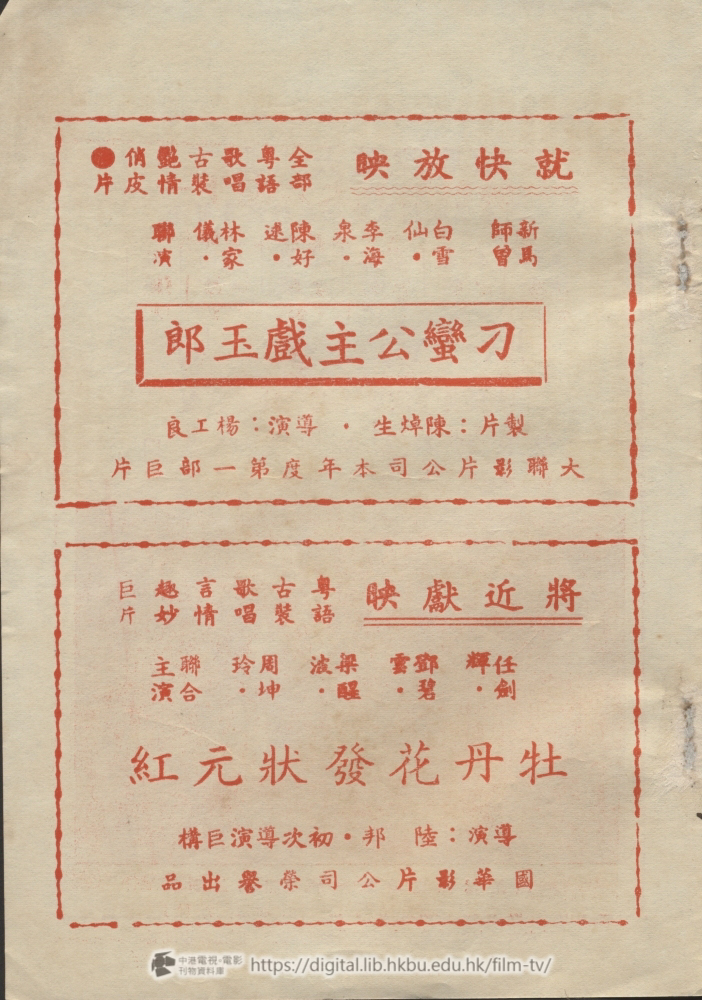 就快放映
全部粵語歌唱古裝艷情俏皮●片
新馬師曾 白雪仙・李海泉・陳好逑・林家儀・聯演
刁蠻公主戲玉郎
製片：陳焯生・導演：楊工良
大聯影片公司本年度第一部巨片
將近獻映
粵語古裝歌唱言情趣妙巨片
任劍輝・鄧碧雲・梁醒波・周坤玲・聯合主演
牡丹花發狀元紅
導演：陸邦・初次導演巨構
國華影片公司榮譽出品
中港電視・電影
刊物資料庫
https://digital.lib.hkbu.edu.hk/film-tv/